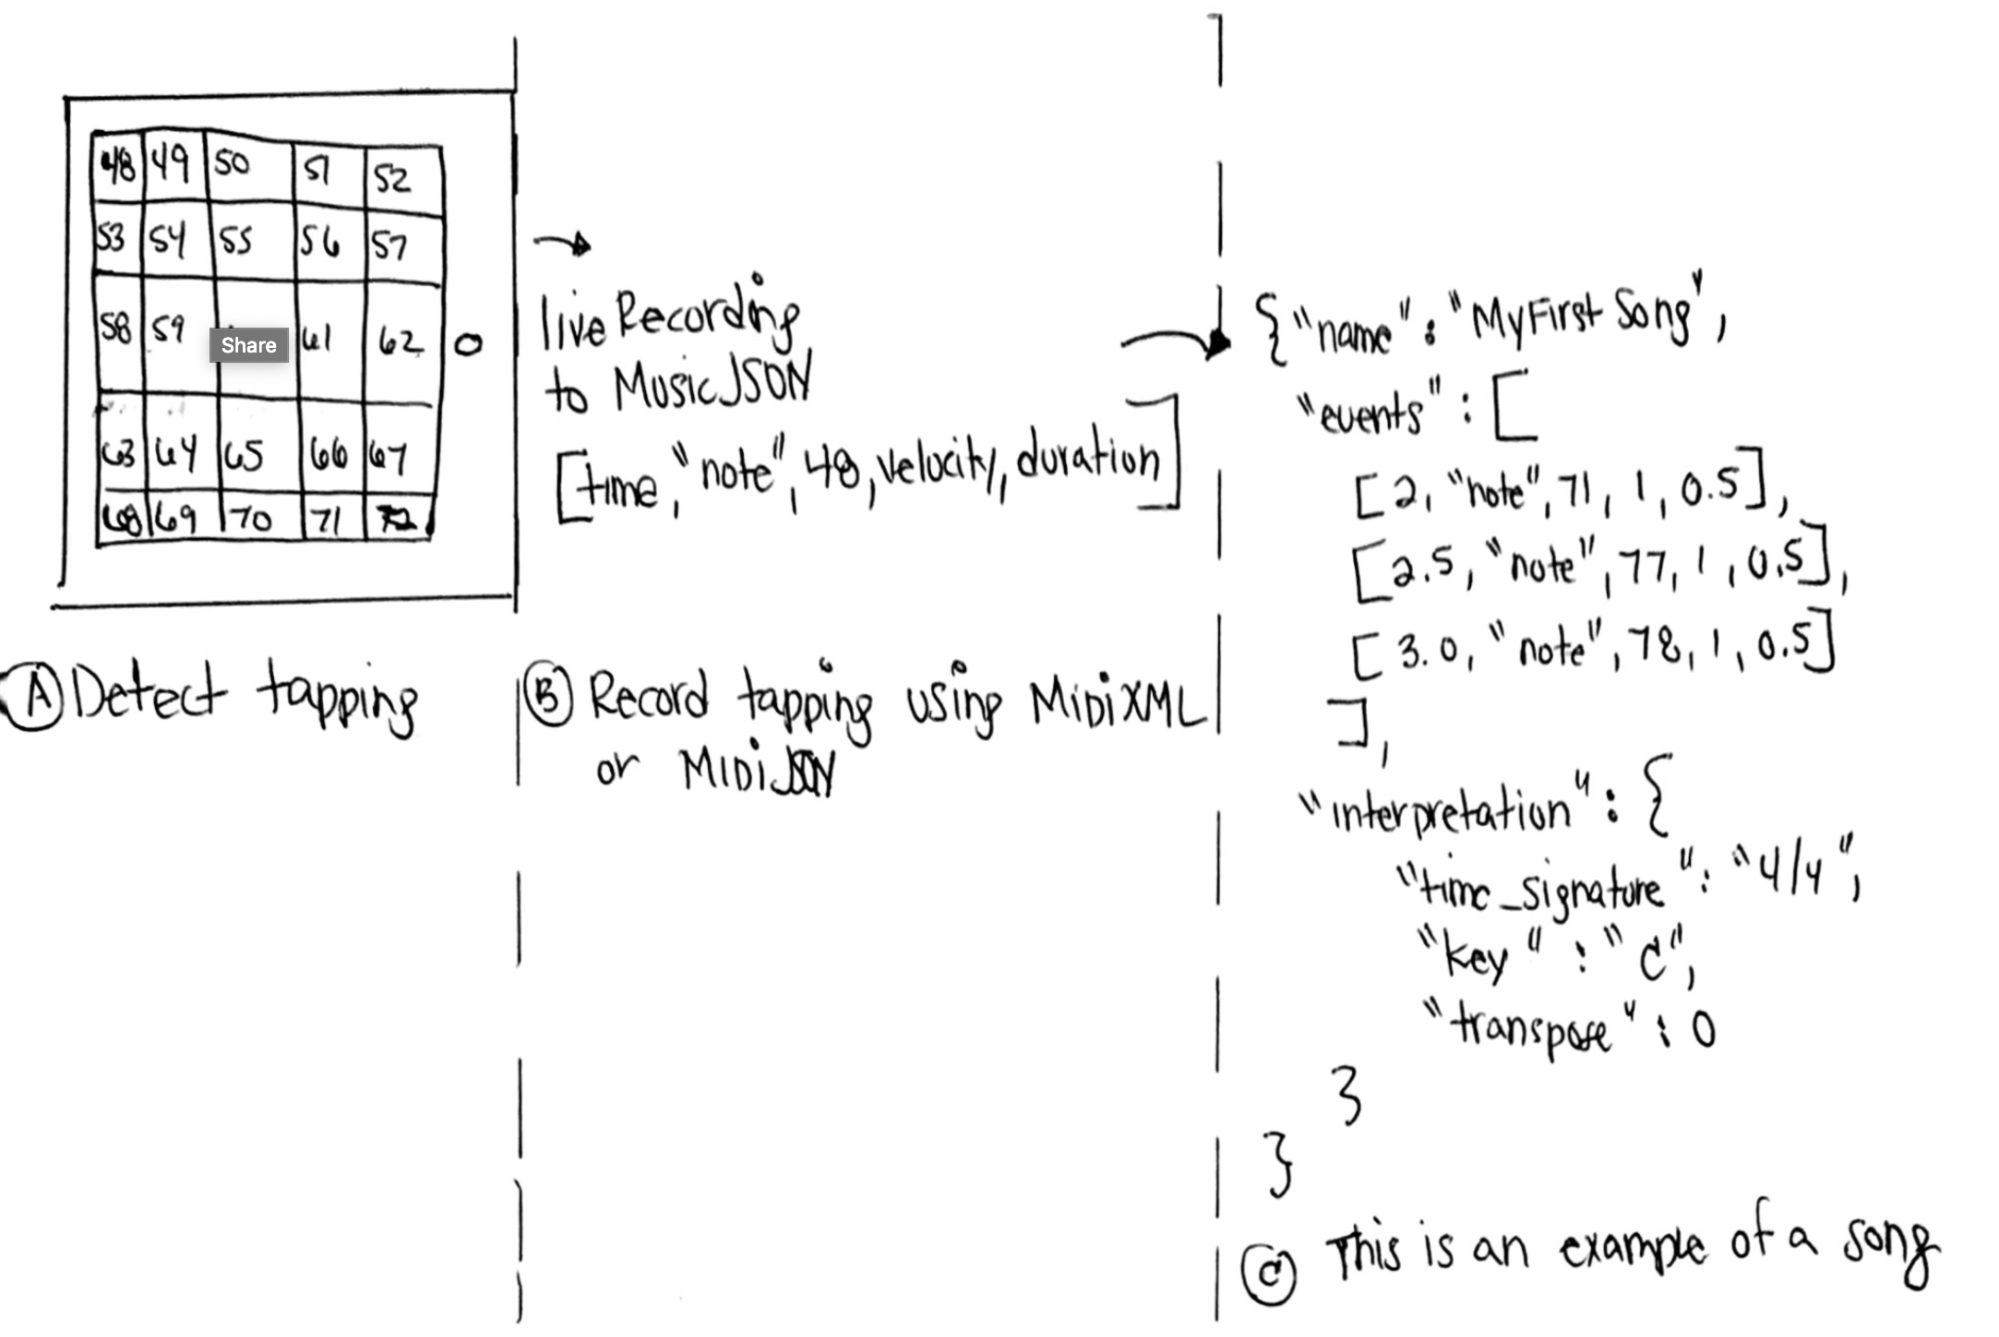 48 49 50 51 52
53 54 55 56 57
58 59 Share 61 62
63 64 65 66 67
68 69 70 71 72
Ⓐ Detect tapping
live Recording
to MusicJSON
[time, "note", 48, velocity, duration]
Ⓑ Record tapping using MiDiXML
or MIDiJSON
{"name": "MyFirst Song",
"events": [
[2, "note", 71, 1, 0.5],
[2.5, "note", 77, 1, 0.5],
[3.0, "note", 78, 1, 0.5]
],
"interpretation": {
"time_signature": "4/4",
"key": "C",
"transpose": 0
}
}
Ⓒ This is an example of a song